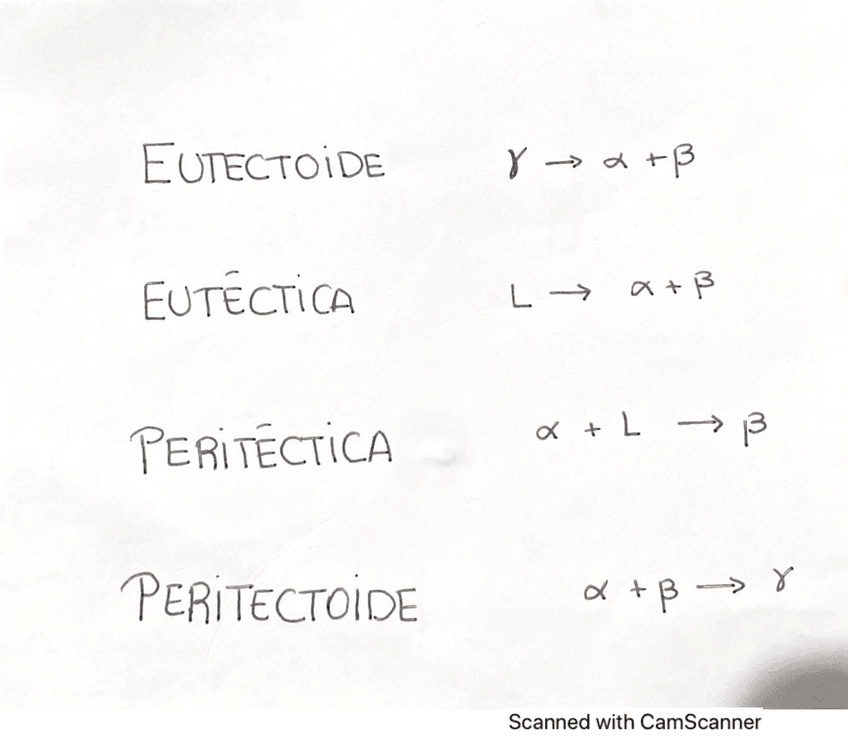 EUTECTOIDE γ → α + β
EUTÉCTICA L → α + β
PERITÉCTICA α + L → β
PERITECTOIDE α + β → γ
Scanned with CamScanner